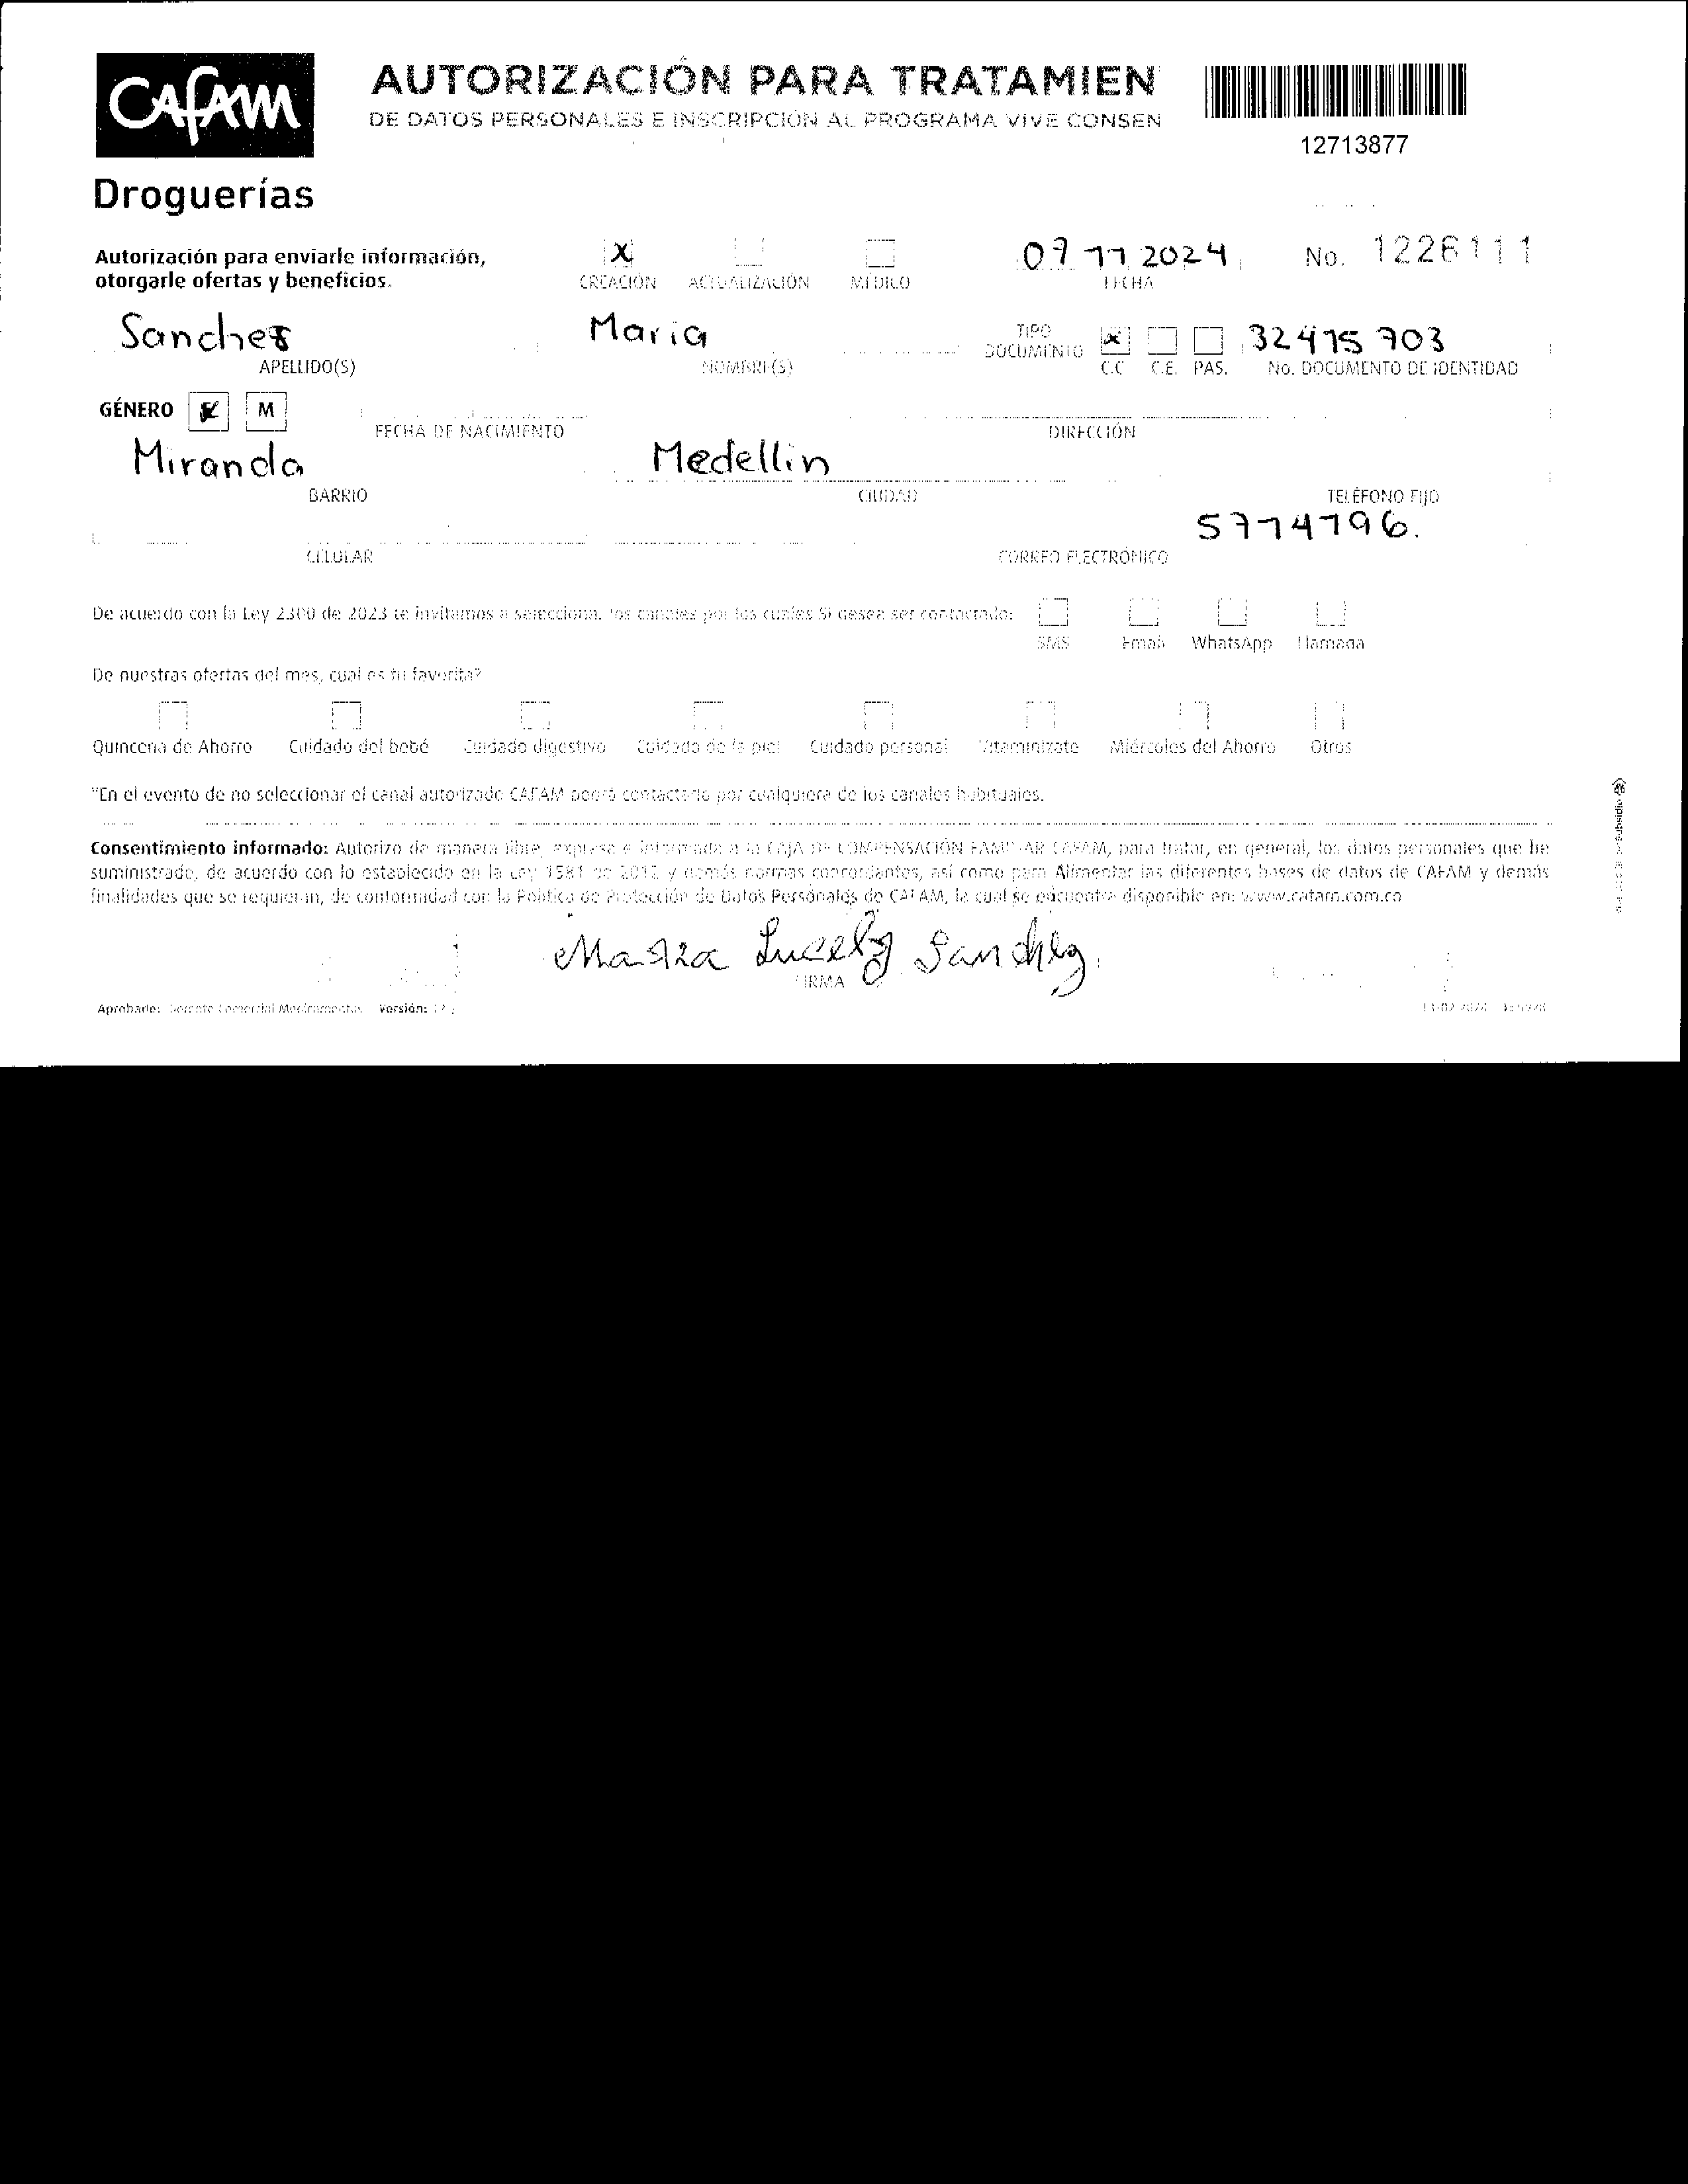 CAFAM
AUTORIZACIÓN PARA TRATAMIEN
DE DATOS PERSONALES E INSCRIPCIÓN AL PROGRAMA VIVE CONSEN
12713877
Droguerías
Autorización para enviarle información,
otorgarle ofertas y beneficios.
X
CREACIÓN ACTUALIZACIÓN MÉDICO
07 11 2024
FECHA
No. 1226111
Sanchez María
APELLIDO(S) NOMBRE(S)
TIPO DOCUMENTO
X
C.C C.E. PAS.
32415703
No. DOCUMENTO DE IDENTIDAD
GÉNERO F M
FECHA DE NACIMIENTO DIRECCIÓN
Miranda Medellin
BARRIO CIUDAD TELÉFONO FIJO
5774796.
CELULAR CORREO ELECTRÓNICO
De acuerdo con la Ley 2300 de 2023 te invitamos a seleccionar los canales por los cuales SI desea ser contactado:
SMS Email WhatsApp Llamada
De nuestras ofertas del mes, cual es tu favorita?
Quincena de Ahorro Cuidado del bebé Cuidado digestivo Cuidado de la piel Cuidado personal Vitaminízate Miércoles del Ahorro Otros
"En el evento de no seleccionar el canal autorizado CAFAM podrá contactarlo por cualquiera de los canales habituales.
Consentimiento informado: Autorizo de manera libre, expresa e informada a la CAJA DE COMPENSACIÓN FAMILIAR CAFAM, para tratar, en general, los datos personales que he
suministrado, de acuerdo con lo establecido en la Ley 1581 de 2012 y demás normas concordantes, así como para Alimentar las diferentes bases de datos de CAFAM y demás
finalidades que se requieran, de conformidad con la Política de Protección de Datos Personales de CAFAM, la cual se encuentra disponible en: www.cafam.com.co
Maria Lucelly Sanchez
FIRMA
Aprobado: Gerente Comercial Medicamentos Versión: